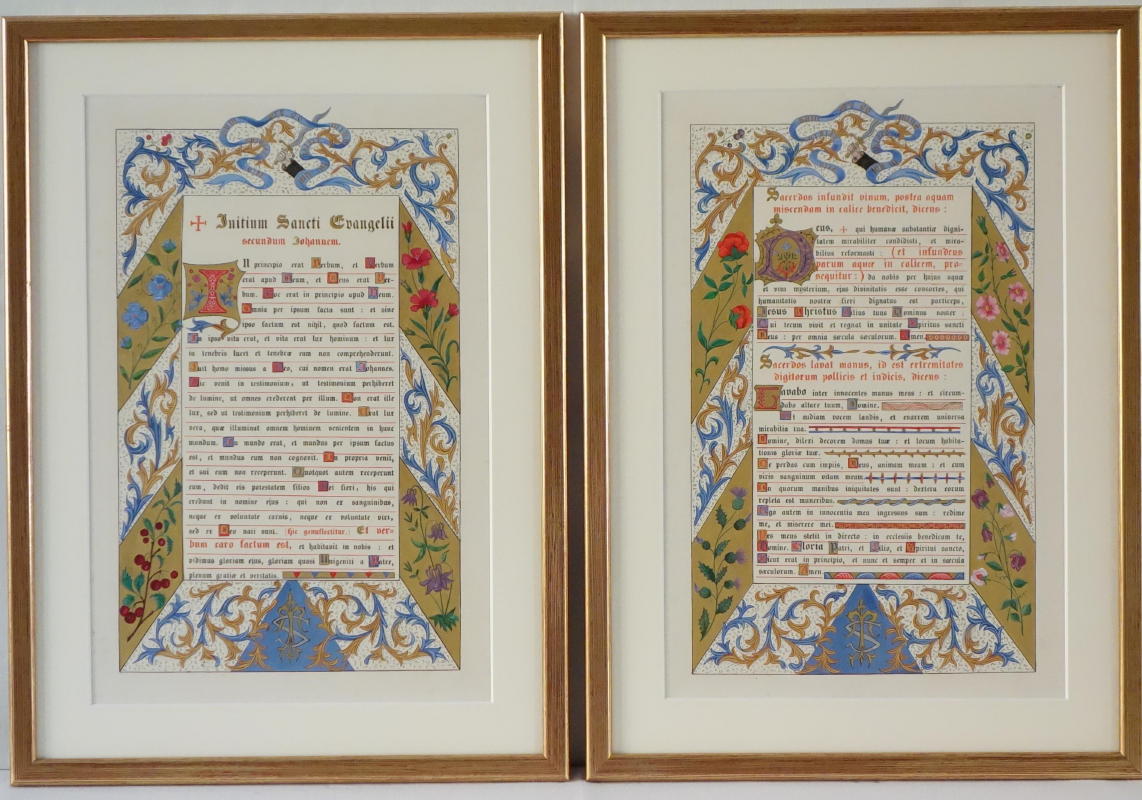 ✠ Initium Sancti Evangelii
secundum Johannem.
In principio erat Verbum, et Verbum
erat apud Deum, et Deus erat Ver-
bum. Hoc erat in principio apud Deum.
Omnia per ipsum facta sunt : et sine
ipso factum est nihil, quod factum est,
In ipso vita erat, et vita erat lux hominum : et lux
in tenebris lucet et tenebræ eam non comprehenderunt.
Fuit homo missus a Deo, cui nomen erat Johannes.
Hic venit in testimonium, ut testimonium perhiberet
de lumine, ut omnes crederent per illum. Non erat ille
lux, sed ut testimonium perhiberet de lumine. Erat lux
vera, quæ illuminat omnem hominem venientem in hunc
mundum. In mundo erat, et mundus per ipsum factus
est, et mundus eum non cognovit. In propria venit,
et sui eum non receperunt. Quotquot autem receperunt
eum, dedit eis potestatem filios Dei fieri, his qui
credunt in nomine ejus : qui non ex sanguinibus,
neque ex voluntate carnis, neque ex voluntate viri,
sed ex Deo nati sunt. (hic genuflectitur.) Et ver-
bum caro factum est, et habitavit in nobis : et
vidimus gloriam ejus, gloriam quasi Unigeniti a Patre,
plenum gratiæ et veritatis.
Sacerdos infundit vinum, postea aquam
miscendam in calice benedicit, dicens :
Deus, + qui humanæ substantiæ digni-
tatem mirabiliter condidisti, et mira-
bilius reformasti : (et infundens
parum aquæ in calicem, pro-
sequitur :) da nobis per hujus aquæ
et vini mysterium, ejus divinitatis esse consortes, qui
humanitatis nostræ fieri dignatus est particeps,
Jesus Christus Filius tuus Dominus noster :
Qui tecum vivit et regnat in unitate Spiritus sancti
Deus : per omnia sæcula sæculorum. Amen.
Sacerdos lavat manus, id est extremitates
digitorum pollicis et indicis, dicens :
Lavabo inter innocentes manus meas : et circum-
dabo altare tuum, Domine.
Ut audiam vocem laudis, et enarrem universa
mirabilia tua.
Domine, dilexi decorem domus tuæ : et locum habita-
tionis gloriæ tuæ.
Ne perdas cum impiis, Deus, animam meam : et cum
viris sanguinum vitam meam.
In quorum manibus iniquitates sunt : dextera eorum
repleta est muneribus.
Ego autem in innocentia mea ingressus sum : redime
me, et miserere mei.
Pes meus stetit in directo : in ecclesiis benedicam te,
Domine. Gloria Patri, et Filio, et Spiritui sancto,
Sicut erat in principio, et nunc et semper et in sæcula
sæculorum. Amen